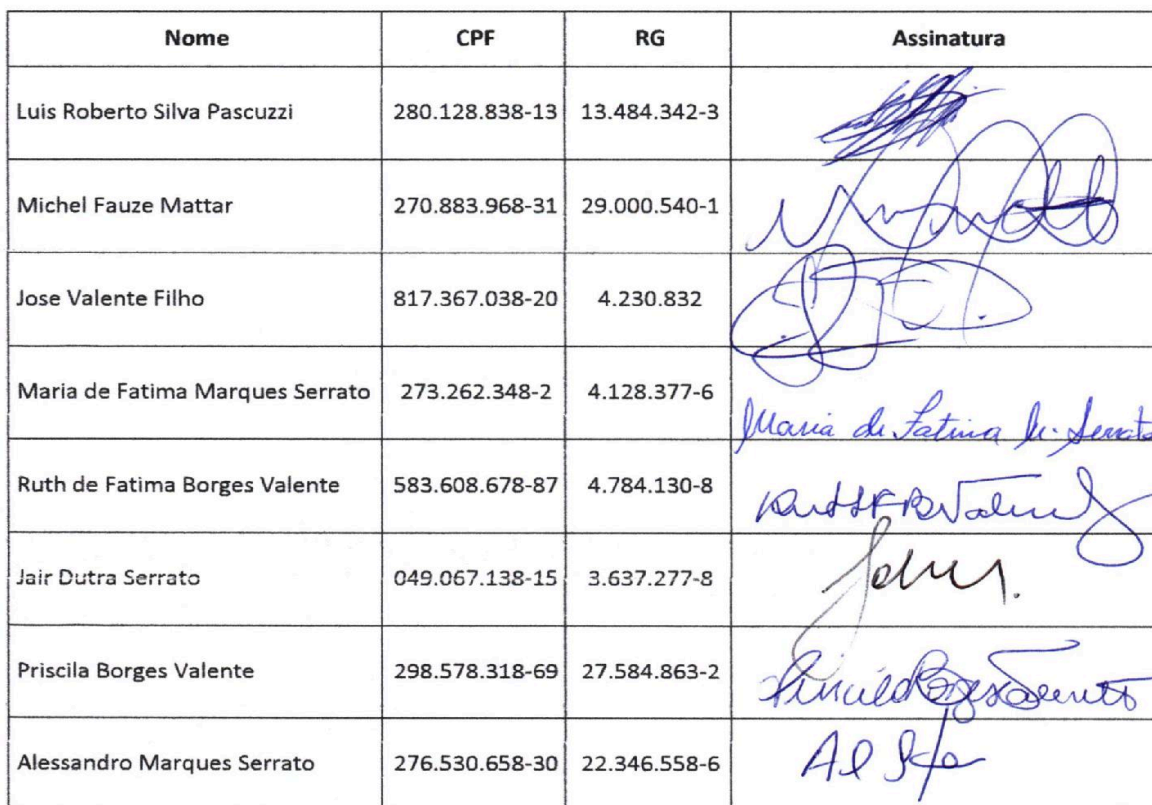 Nome CPF RG Assinatura
Luis Roberto Silva Pascuzzi 280.128.838-13 13.484.342-3
Michel Fauze Mattar 270.883.968-31 29.000.540-1
Jose Valente Filho 817.367.038-20 4.230.832
Maria de Fatima Marques Serrato 273.262.348-2 4.128.377-6 Maria de Fatima M. Serrato
Ruth de Fatima Borges Valente 583.608.678-87 4.784.130-8
Jair Dutra Serrato 049.067.138-15 3.637.277-8
Priscila Borges Valente 298.578.318-69 27.584.863-2
Alessandro Marques Serrato 276.530.658-30 22.346.558-6